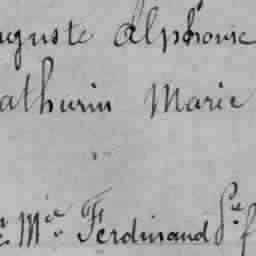 uguste Alphonse
athurin Marie
Mie Ferdinand Pre